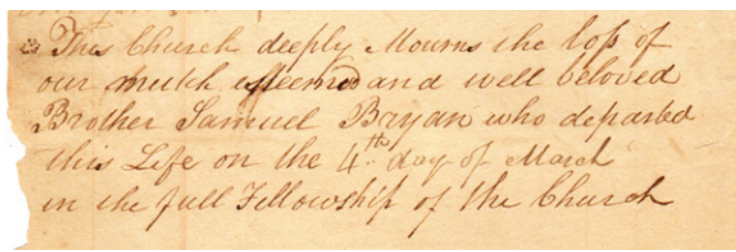 This Church deeply Mourns the loss of
our mutch esteemed and well beloved
Brother Samuel Bryan who departed
this Life on the 4th day of March
in the full Fellowship of the Church